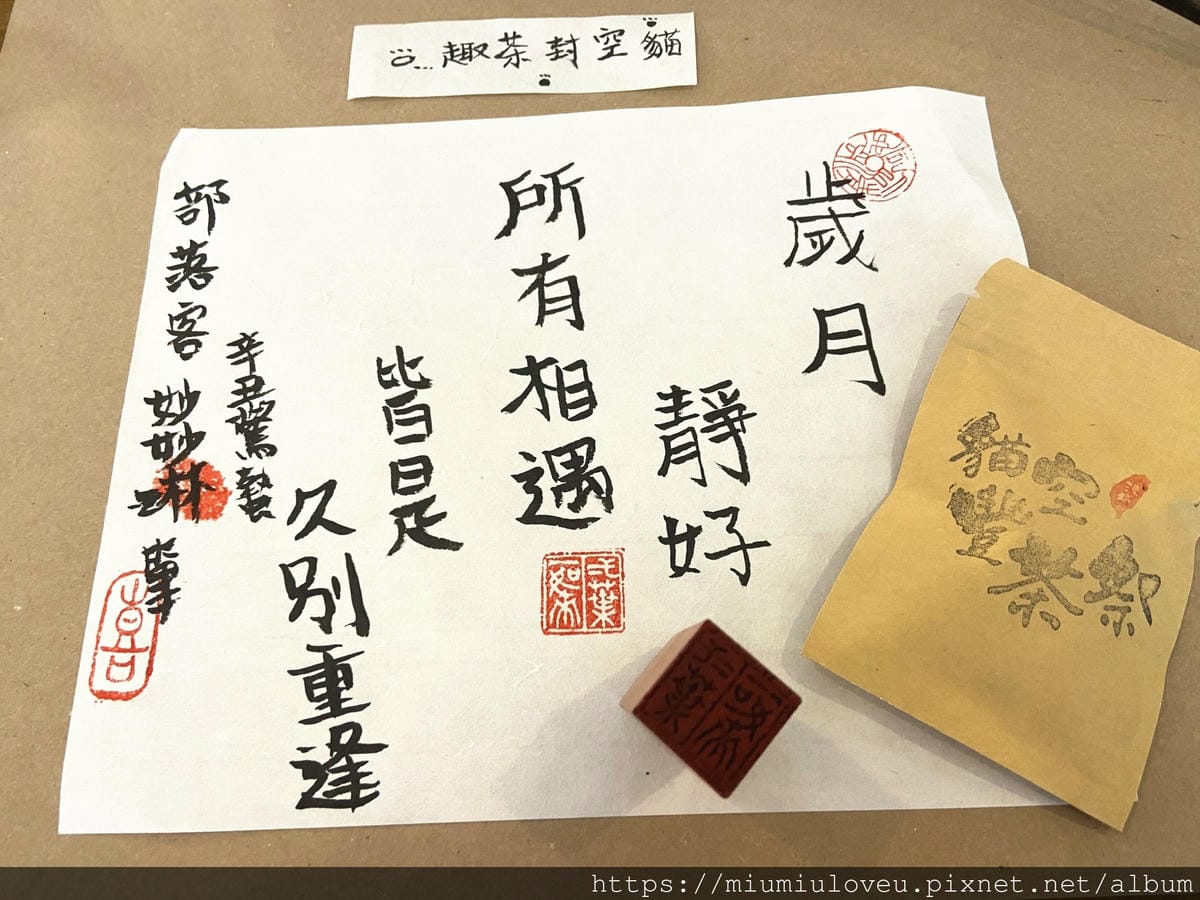 貓空封茶趣
歲月
靜好
所有相遇
皆是
久別重逢
辛丑驚蟄
部落客 妙妙琳
喜
貓空
豐茶鄉
https://miumiuloveu.pixnet.net/album